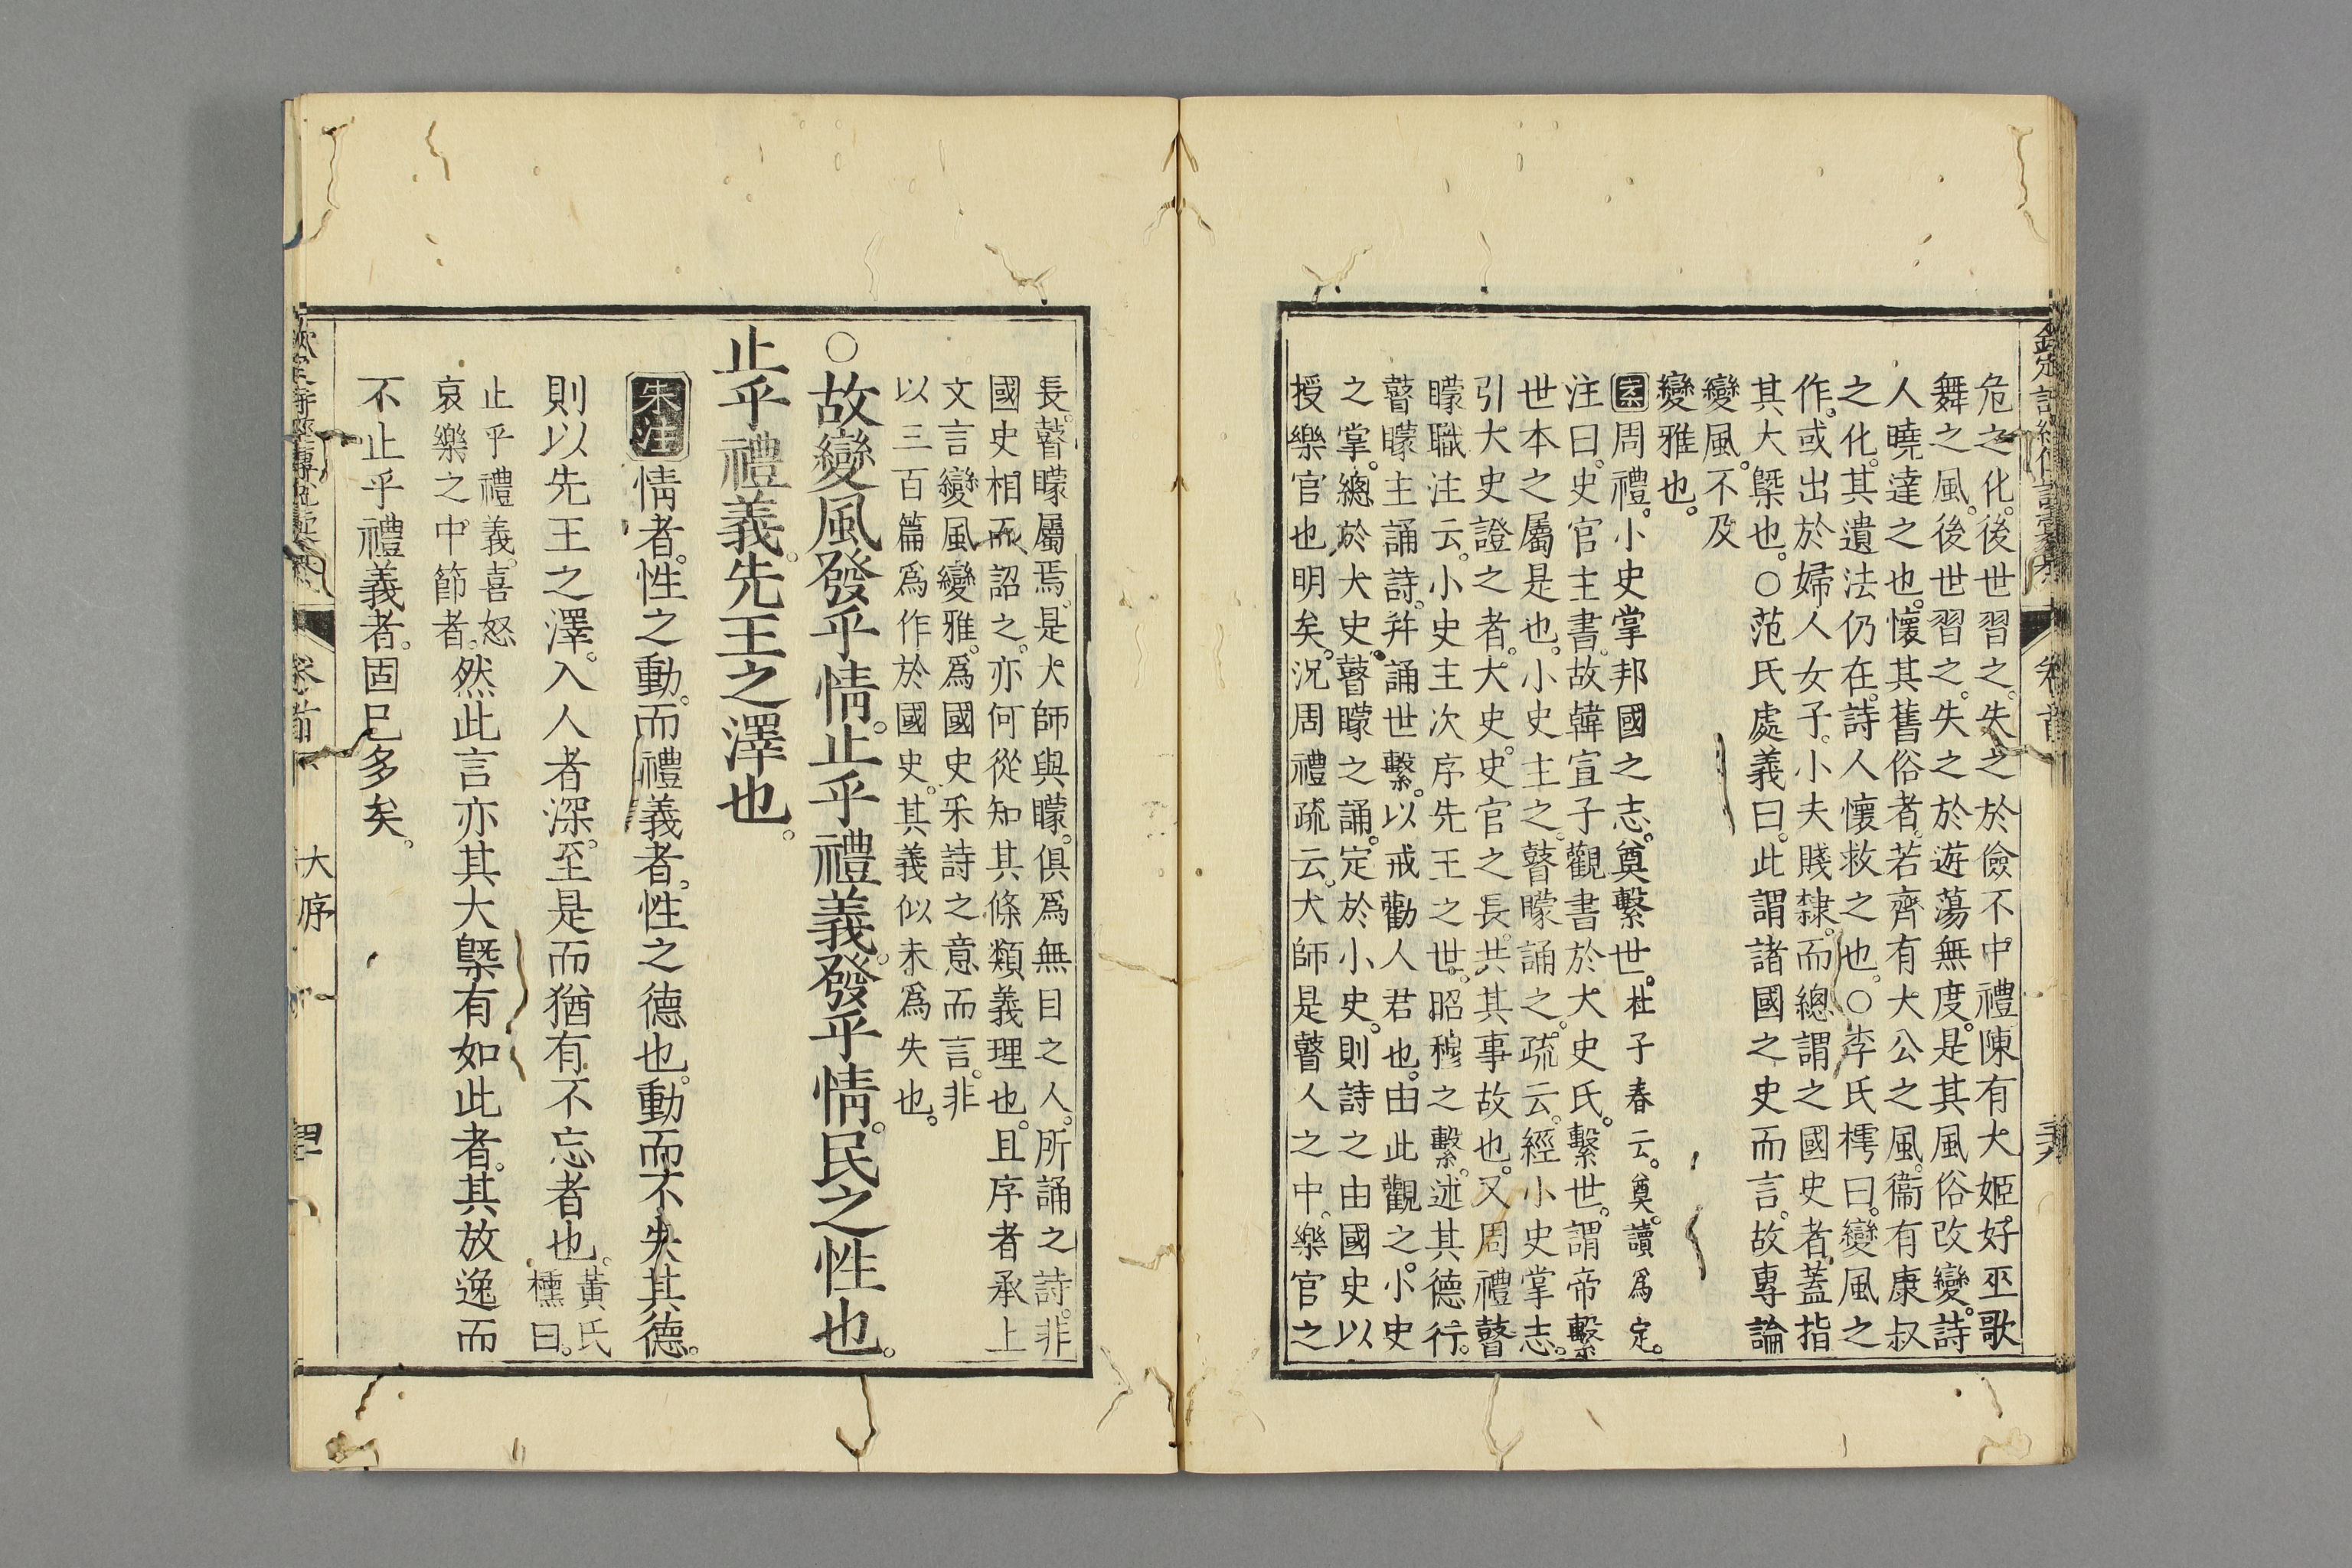 危之化。後世習之。失之於儉不中禮陳有大姬好巫歌
舞之風。後世習之。失之於遊蕩無度。是其風俗改變。詩
人曉達之也。懷其舊俗者。若齊有大公之風。衞有康叔
之化。其遺法仍在。詩人懷救之也。○李氏樗曰。變風之
作。或出於婦人女子。小夫賤隸。而總謂之國史者。蓋指
其大槩也。○范氏處義曰。此謂諸國之史而言。故專論
變風。不及
變雅也。
周禮。小史掌邦國之志。奠繫世。杜子春云。奠。讀爲定。
注曰。史官主書。故韓宣子觀書於大史氏。繫世。謂帝繫
世本之屬是也。小史主之。瞽矇誦之。疏云。經小史掌志。
引大史證之者。大史。史官之長。共其事故也。又周禮瞽
矇職注云。小史主次序先王之世。昭穆之繫。述其德行。
瞽矇主誦詩。幷誦世繫。以戒勸人君也。由此觀之。小史
之掌。總於大史。瞽矇之誦。定於小史。則詩之由國史以
授樂官也明矣。況周禮疏云。大師是瞽人之中。樂官之
卷首
長。瞽矇屬焉。是大師與矇。俱爲無目之人。所誦之詩。非
國史相而詔之。亦何從知其條類義理也。且序者承上
文言變風變雅。爲國史采詩之意而言。非
以三百篇爲作於國史。其義似未爲失也。
○故變風發乎情。止乎禮義。發乎情。民之性也。
止乎禮義。先王之澤也。
朱注 情者。性之動。而禮義者。性之德也。動而不失其德。
則以先王之澤。入人者深。至是而猶有不忘者也。黃氏
櫄曰。
止乎禮義。喜怒
哀樂之中節者。然此言亦其大槩有如此者。其放逸而
不止乎禮義者。固已多矣。
卷首下 大序